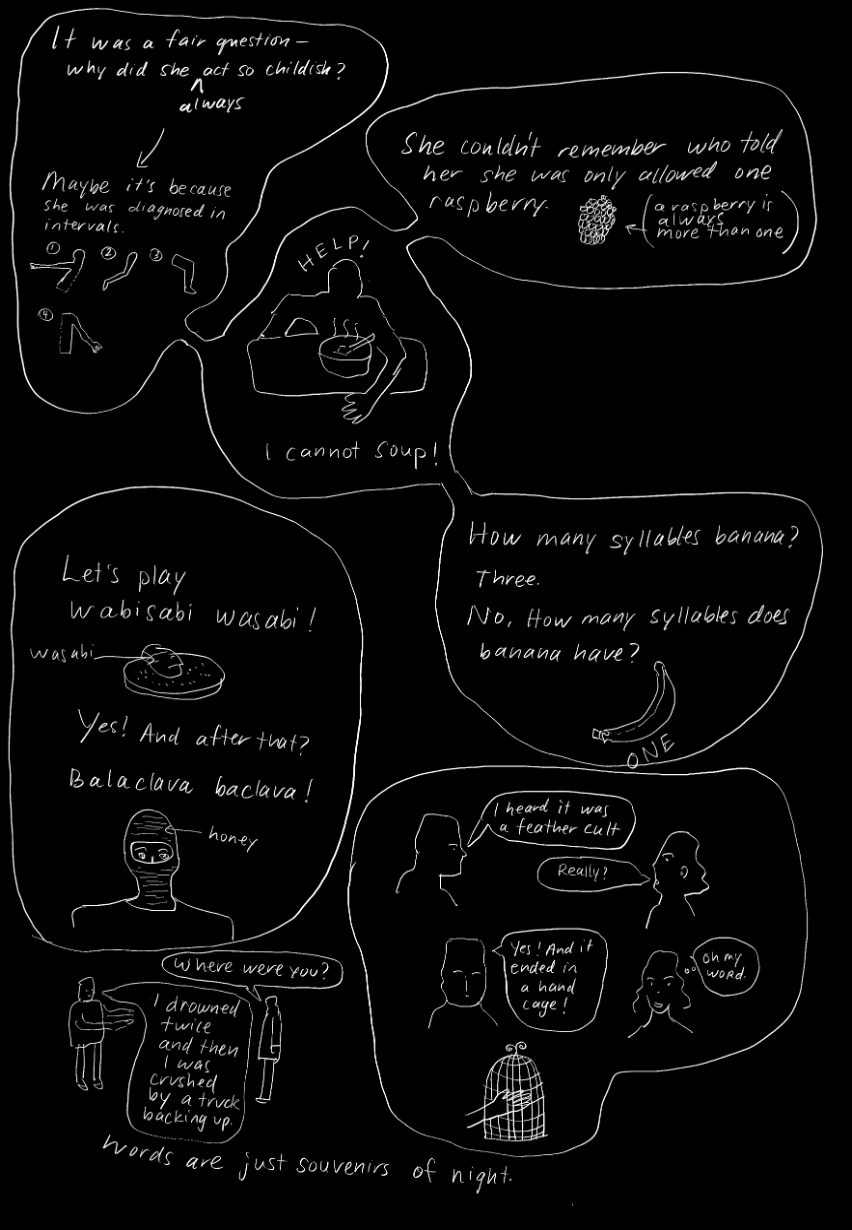 It was a fair question –
why did she act so childish?
always
Maybe it's because
she was diagnosed in
intervals.
① ② ③
④
She couldn't remember who told
her she was only allowed one
raspberry.
(a raspberry is
always
more than one)
HELP!
I cannot soup!
How many syllables banana?
Three.
No, How many syllables does
banana have?
ONE
Let's play
wabisabi wasabi!
wasabi
Yes! And after that?
Balaclava baclava!
honey
I heard it was
a feather cult
Really?
Yes! And it
ended in
a hand
cage!
oh my
word.
Where were you?
I drowned
twice
and then
I was
crushed
by a truck
backing up.
Words are just souvenirs of night.